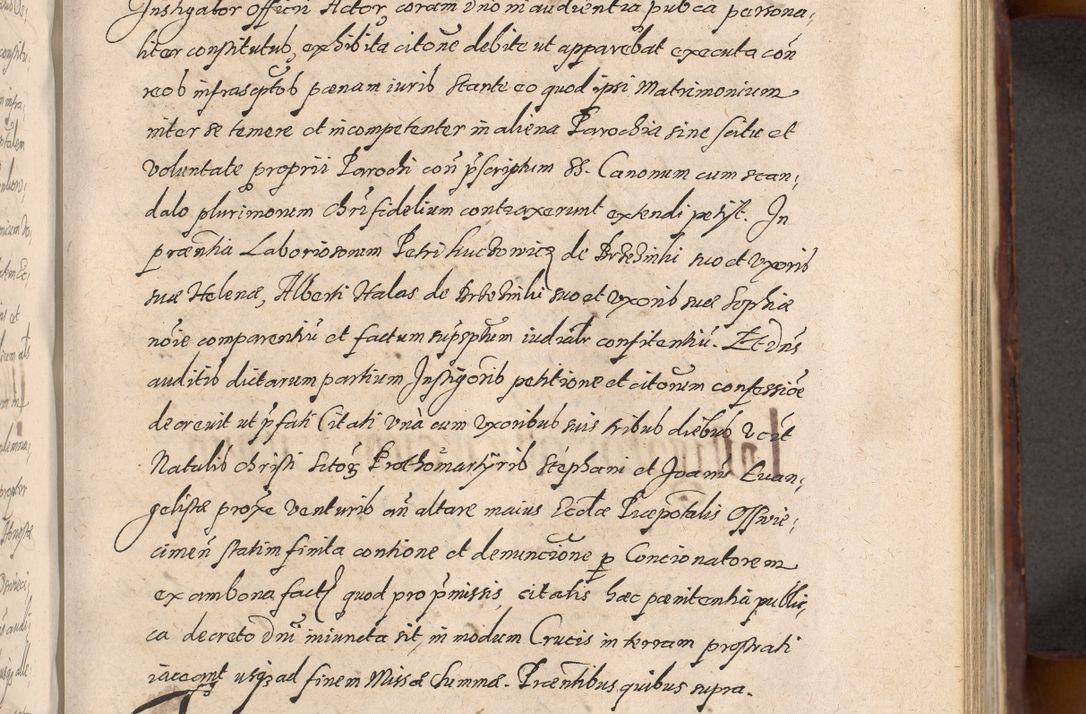 Instigator Officii Actor coram Dno in audientia pubca persona,
liter constitutus exhibita citone debite ut apparebat executa con
reos infrascptos pœnam iuris stante eo quod ipsi Matrimonium
inter se temere et incompetenter in aliena Parochia sine scitu et
voluntate proprii Parochi con pscriptum SS. Canonum cum scan,
dalo plurimorum Chrifidelium contraxerunt extendi petijt. In
præntia Laboriosorum Petri de suo et Uxoris
suæ Helenæ, Alberti Halas de suo et Uxoris suæ Sophiæ
noie comparentiu et factum supsptum iudialr confitentiu. Et Dns
auditis dictarum partium Instigoris petitione et citorum confessioe
decrevit ut pfati Citati una cum Uxoribus suis tribus diebus
Natalis Christi Prothomartyris Stephani et Joanis Evan,
gelistæ proxe venturis an altare maius Eccliæ Præpotalis Osswie,
cimen statim finita contione et denuncione p Concionatorem
ex ambona quod pro pmissis citatis hæc pænitentia publi,
ca decreto Dni iniuncta sit, in modum Crucis in terram prostrati
iaceant usq ad finem Missæ summæ. Præntibus quibus supra.